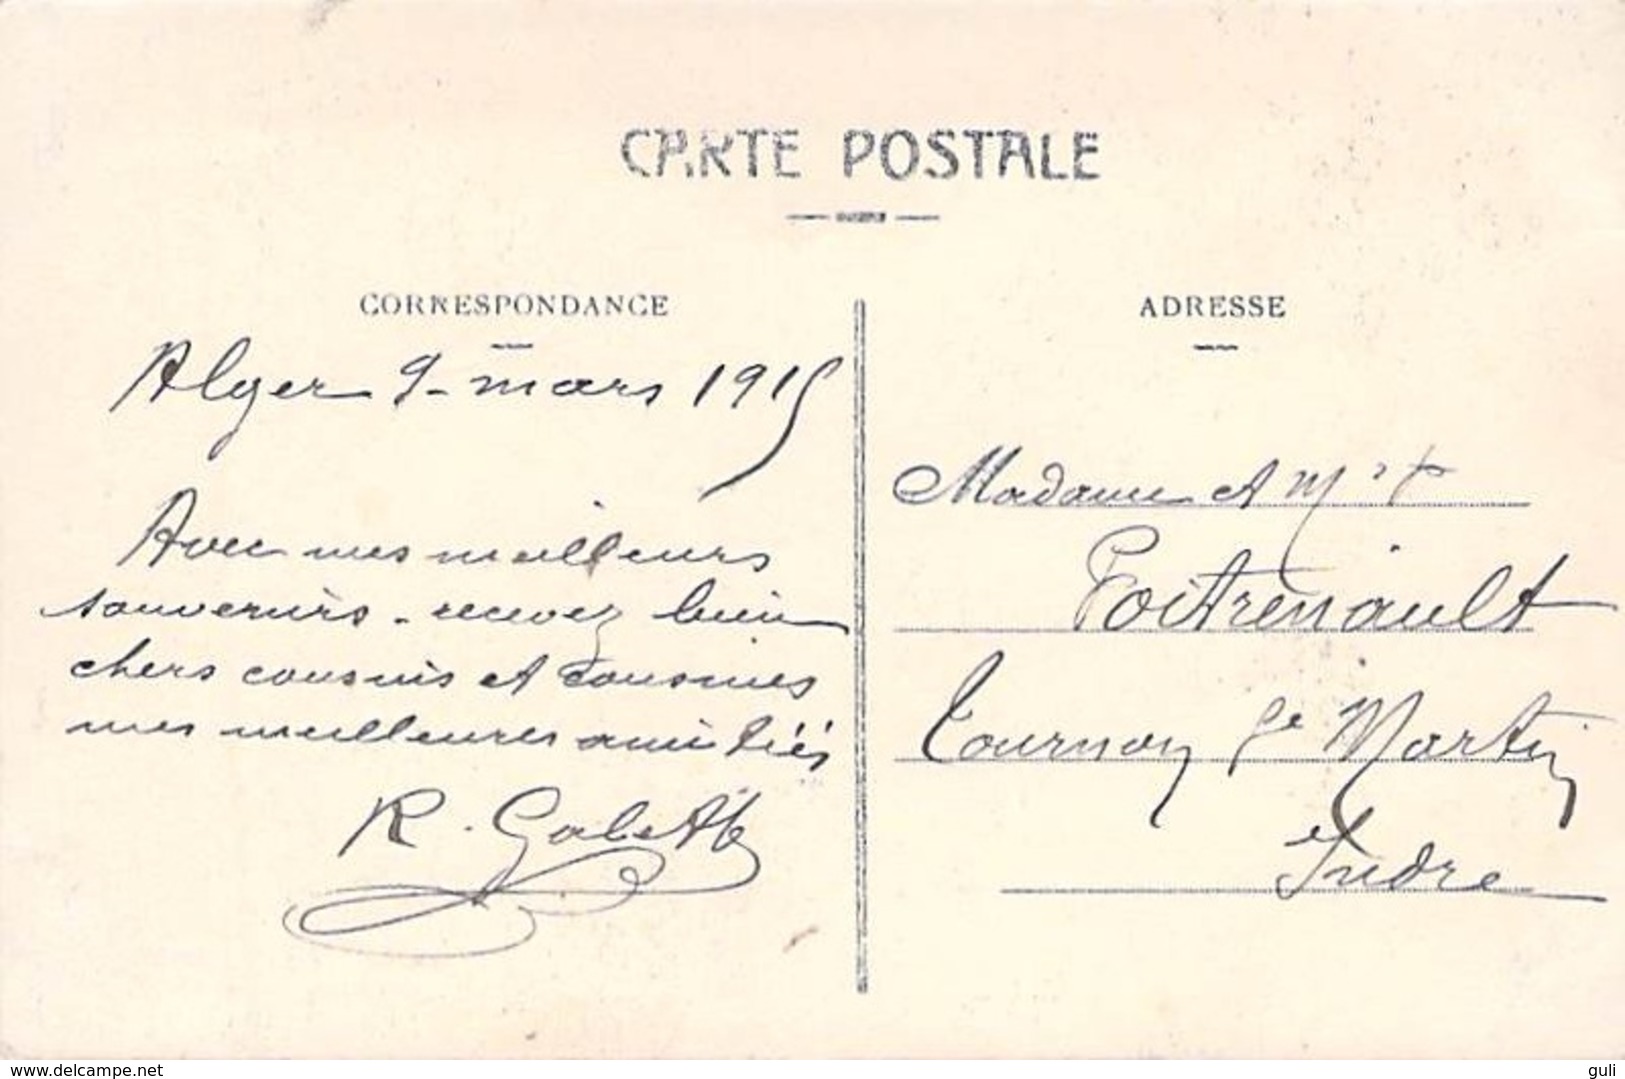 CARTE POSTALE
CORRESPONDANCE
Alger 9 - mars 1915
Avec mes meilleurs
souvenirs - recevez bien
chers cousins et cousines
mes meilleures amitiés
R. Galette
ADRESSE
Madame et Mr
Poitrenault
Tournon St Martin
Indre
www.delcampe.net
guli